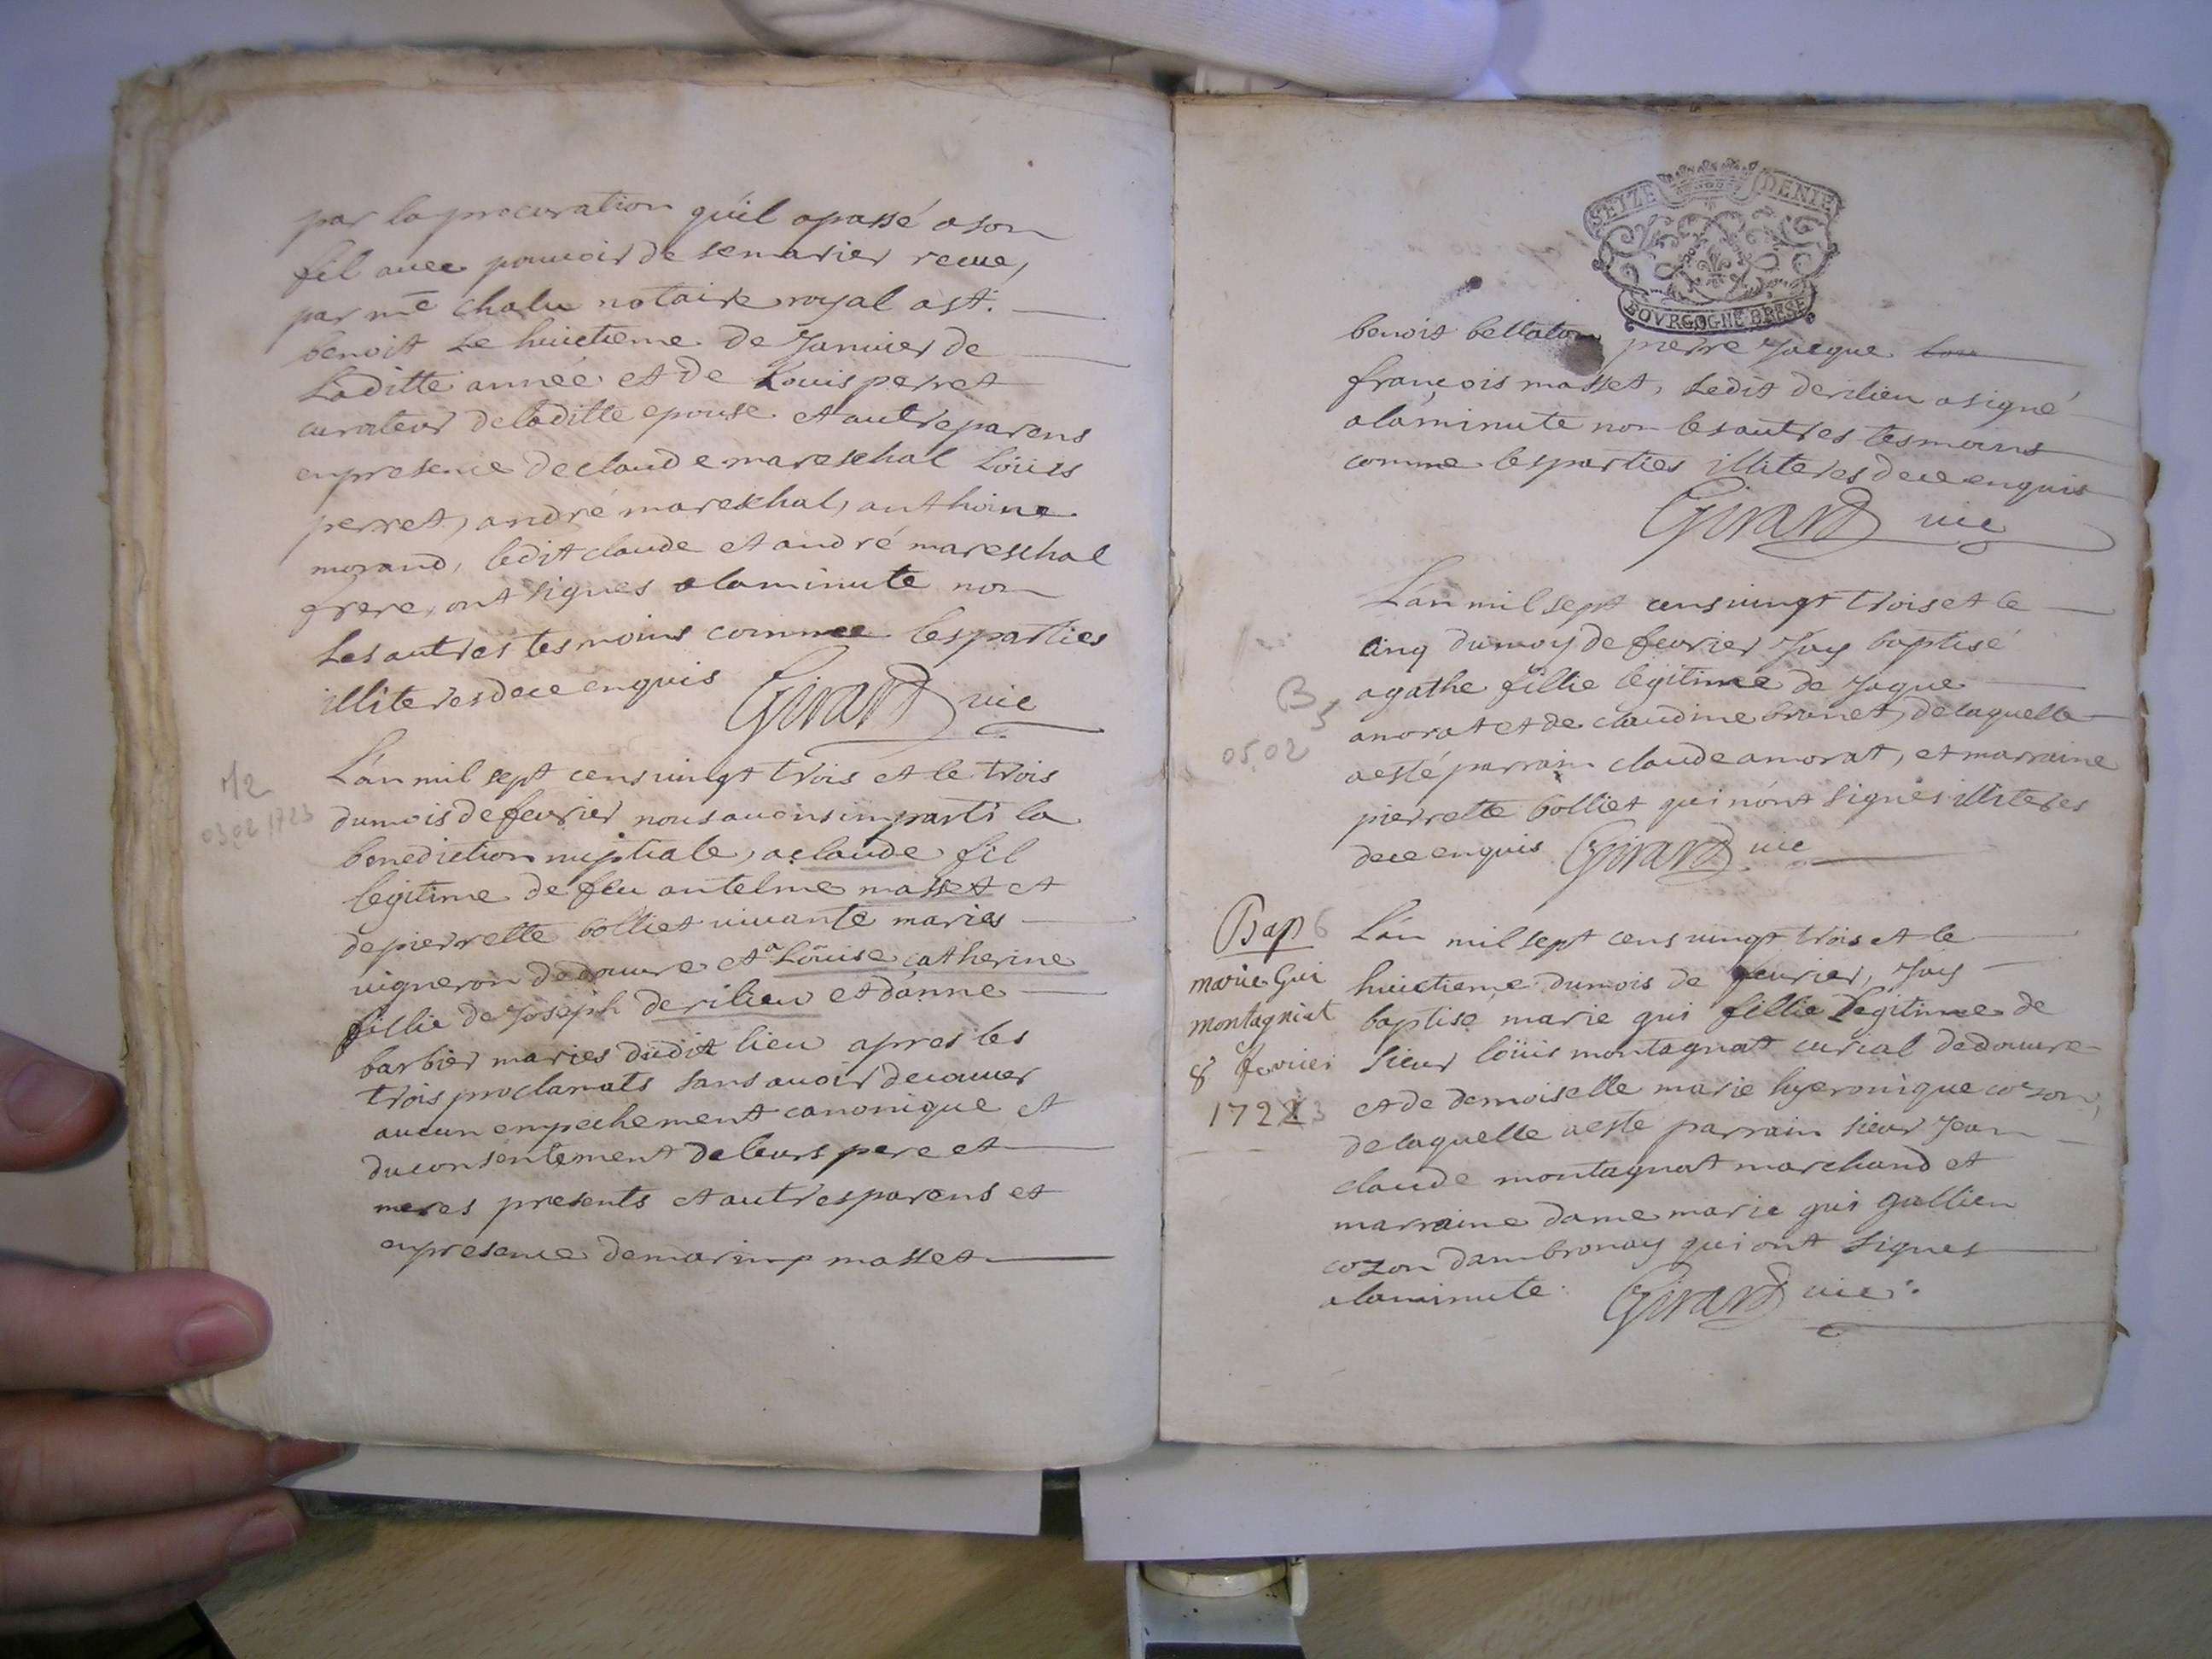 par la procuration qu'il a passé a son
fil avec pouvoir de se marier recue,
par me chalu notaire royal a st.
benoit le huictieme de Januier de
Laditte année et de Louis perret
curateur de laditte epouse et autre parens
en presence de claude mareschal Loüis
perret, andré mareschal, anthoine
morand, ledit claude et andré mareschal
frere, ont signes a la minute non
Les autres tesmoins comme les parties
illiteres de ce enquis Girard vic
M2
03.02.1723
L'an mil sept cens vingt trois et le trois
du mois de feurier nous auons imparti la
benediction nuptiale, a claude fil
legitime de feu antelme masset et
de pierrette bolliet viuante maries
vigneron de douure et a Loüise catherine
fillie de Joseph de rilieu et d'anne
barbier maries düdit lieu apres les
trois proclamats sans auoir decouuer
aucun empechement canonique et
du consentement de leurs pere et
meres presents et autres parens et
en presence de masset
SEIZE DENIE
BOVRGOGNE BRESSE
benoit bellaton pierre Jacque
françois masset, Ledit derilieu a signé
a la minute non les autres tesmoins
comme les parties illiteres de ce enquis
Girard vic
L'an mil sept cens vingt trois et le
cinq du moy de feurier J'ay baptisé
B5
05.02
agathe fillie legitime de Jaque
amorat et de claudine brunet, de laquelle
a esté parrain claude amorat, et marraine
pierrette bolliet qui n'ont signés illiteres
de ce enquis Girard vic
Bap 6
marie Gui
montagniat
8 fevrier
1723
L'an mil sept cens vingt trois et le
huictieme du mois de feurier, J'ay
baptise marie gui fillie Legitime de
sieur loüis montagnat curial de douure
et de demoiselle marie hyeronique cozon,
de laquelle a este parrain sieur Jean
claude montagnat marchand et
marraine dame marie gui gallien
cozon d'ambronay qui ont signes
a la minute. Girard vic.